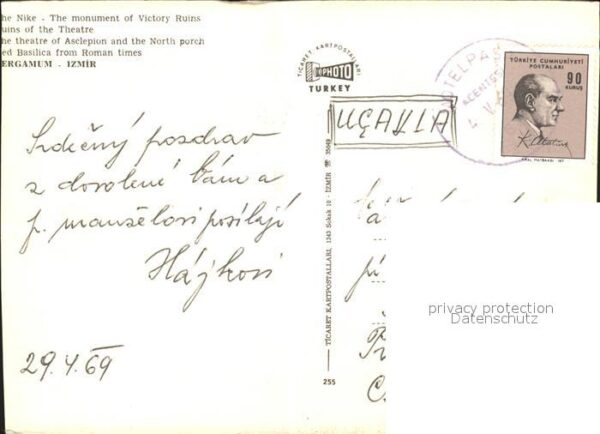 he Nike - The monument of Victory Ruins
uins of the Theatre
he theatre of Asclepion and the North porch
ed Basilica from Roman times
ERGAMUM - IZMİR
TİCARET KARTPOSTALLARI
PHOTO
TURKEY
UÇAKLA
TÜRKİYE CUMHURİYETİ
POSTALARI
90
KURUŞ
K. Atatürk
Srdečný pozdrav
z dovolené Vám a
p. manželovi posílají
Hájkovi
29.4.69
TİCARET KARTPOSTALLARI, 1343 Sokak 10 - İZMİR ☎ 35049
255
privacy protection
Datenschutz